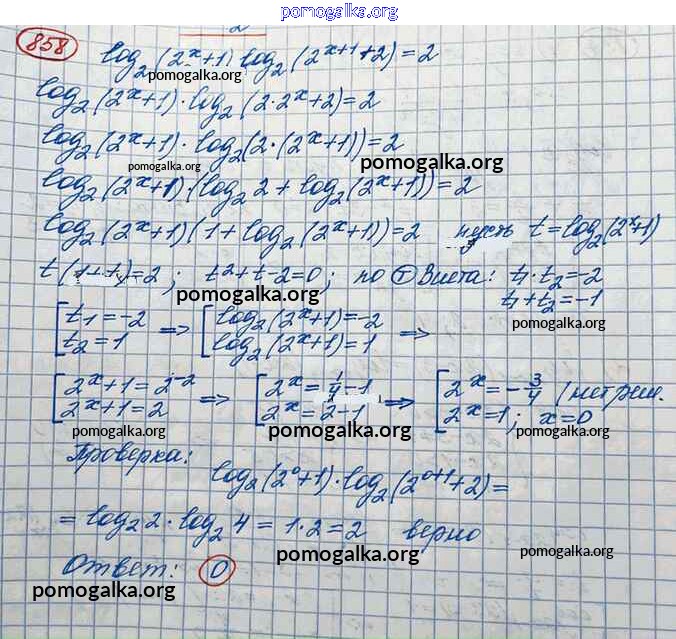 pomogalka.org
2
858 log₂(2ˣ+1) log₂(2ˣ⁺¹+2)=2
pomogalka.org
log₂(2ˣ+1)·log₂(2·2ˣ+2)=2
log₂(2ˣ+1)·log₂(2·(2ˣ+1))=2
pomogalka.org pomogalka.org
log₂(2ˣ+1)·(log₂2+log₂(2ˣ+1))=2
log₂(2ˣ+1)(1+log₂(2ˣ+1))=2 пусть t=log₂(2ˣ+1)
t(1+t)=2; t²+t-2=0; по т Виета: t₁·t₂=-2
pomogalka.org t₁+t₂=-1
pomogalka.org
[t₁=-2 => [log₂(2ˣ+1)=-2 =>
t₂=1 log₂(2ˣ+1)=1
[2ˣ+1=2⁻² => [2ˣ=1/4-1 => [2ˣ=-3/4 (нет реш.
2ˣ+1=2 2ˣ=2-1 2ˣ=1; x=0
pomogalka.org pomogalka.org pomogalka.org
Проверка:
log₂(2⁰+1)·log₂(2⁰⁺¹+2)=
=log₂2·log₂4=1·2=2 верно
pomogalka.org pomogalka.org
Ответ: 0
pomogalka.org pomogalka.org